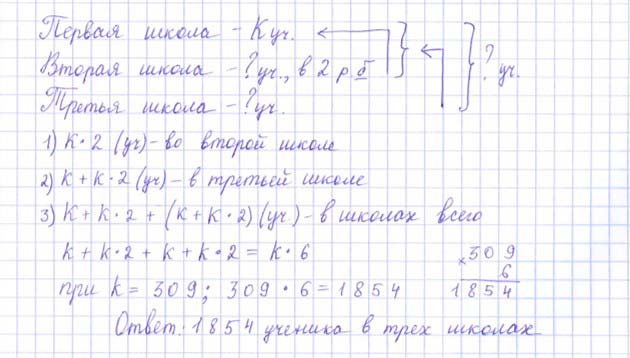 Первая школа - К уч.
Вторая школа - ? уч., в 2 р. б
? уч.
Третья школа - ? уч.
1) К · 2 (уч) - во второй школе
2) К + К · 2 (уч) - в третьей школе
3) К + К · 2 + (К + К · 2) (уч) - в школах всего
К + К · 2 + К + К · 2 = К · 6
×309
6
1854
при К = 309; 309 · 6 = 1854
Ответ: 1854 ученика в трех школах